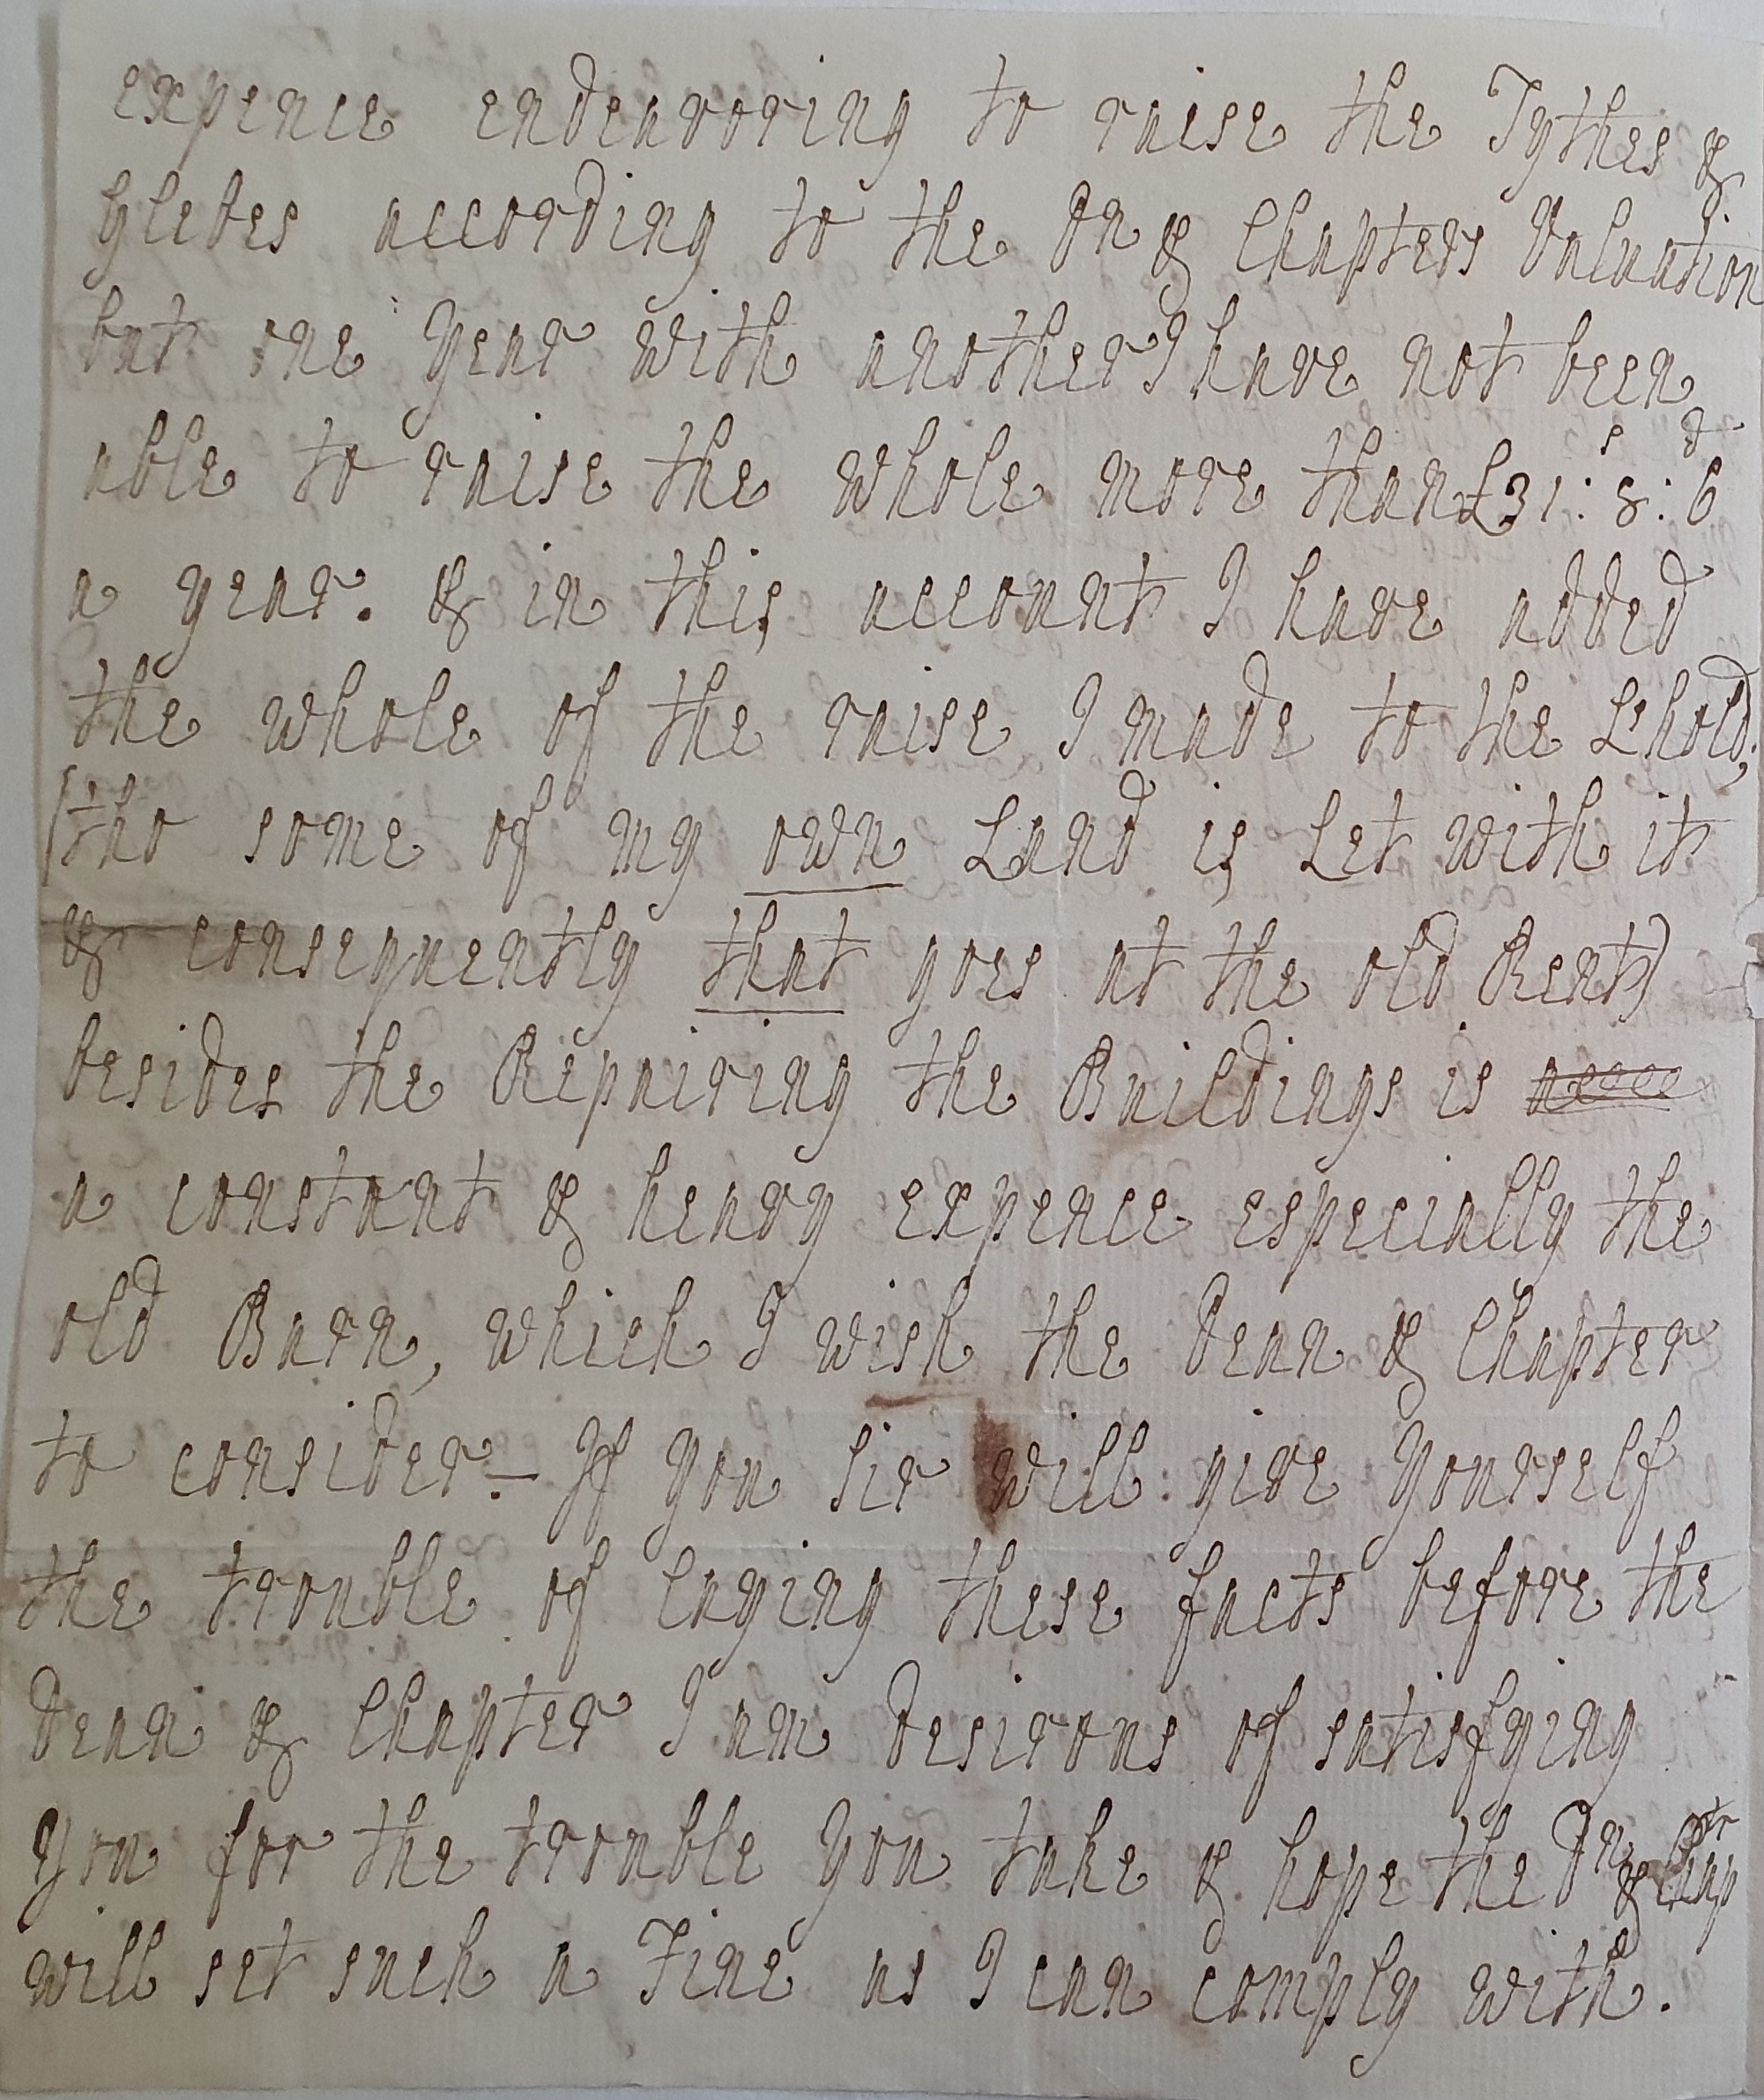 expence endeavoring to raise the Tythes &
Glebes according to the Dn & Chapters Valuation
but one year with another I have not been
able to raise the whole more than £31 : s8 : d6
a year. & in this account I have added
the whole of the raise I made to the Lehold,
(tho' some of my own Land is Let with it
& consequently that goes at the old Rent)
besides the Repairing the Buildings is
a constant & heavy expence especially the
old Barn, which I wish the Dean & Chapter
to consider.— If you Sir will give yourself
the trouble of laying these facts before the
Dean & Chapter I am desirous of satisfying
you for the trouble you take & hope the Dn & Chaptr
will set such a Fine as I can comply with.